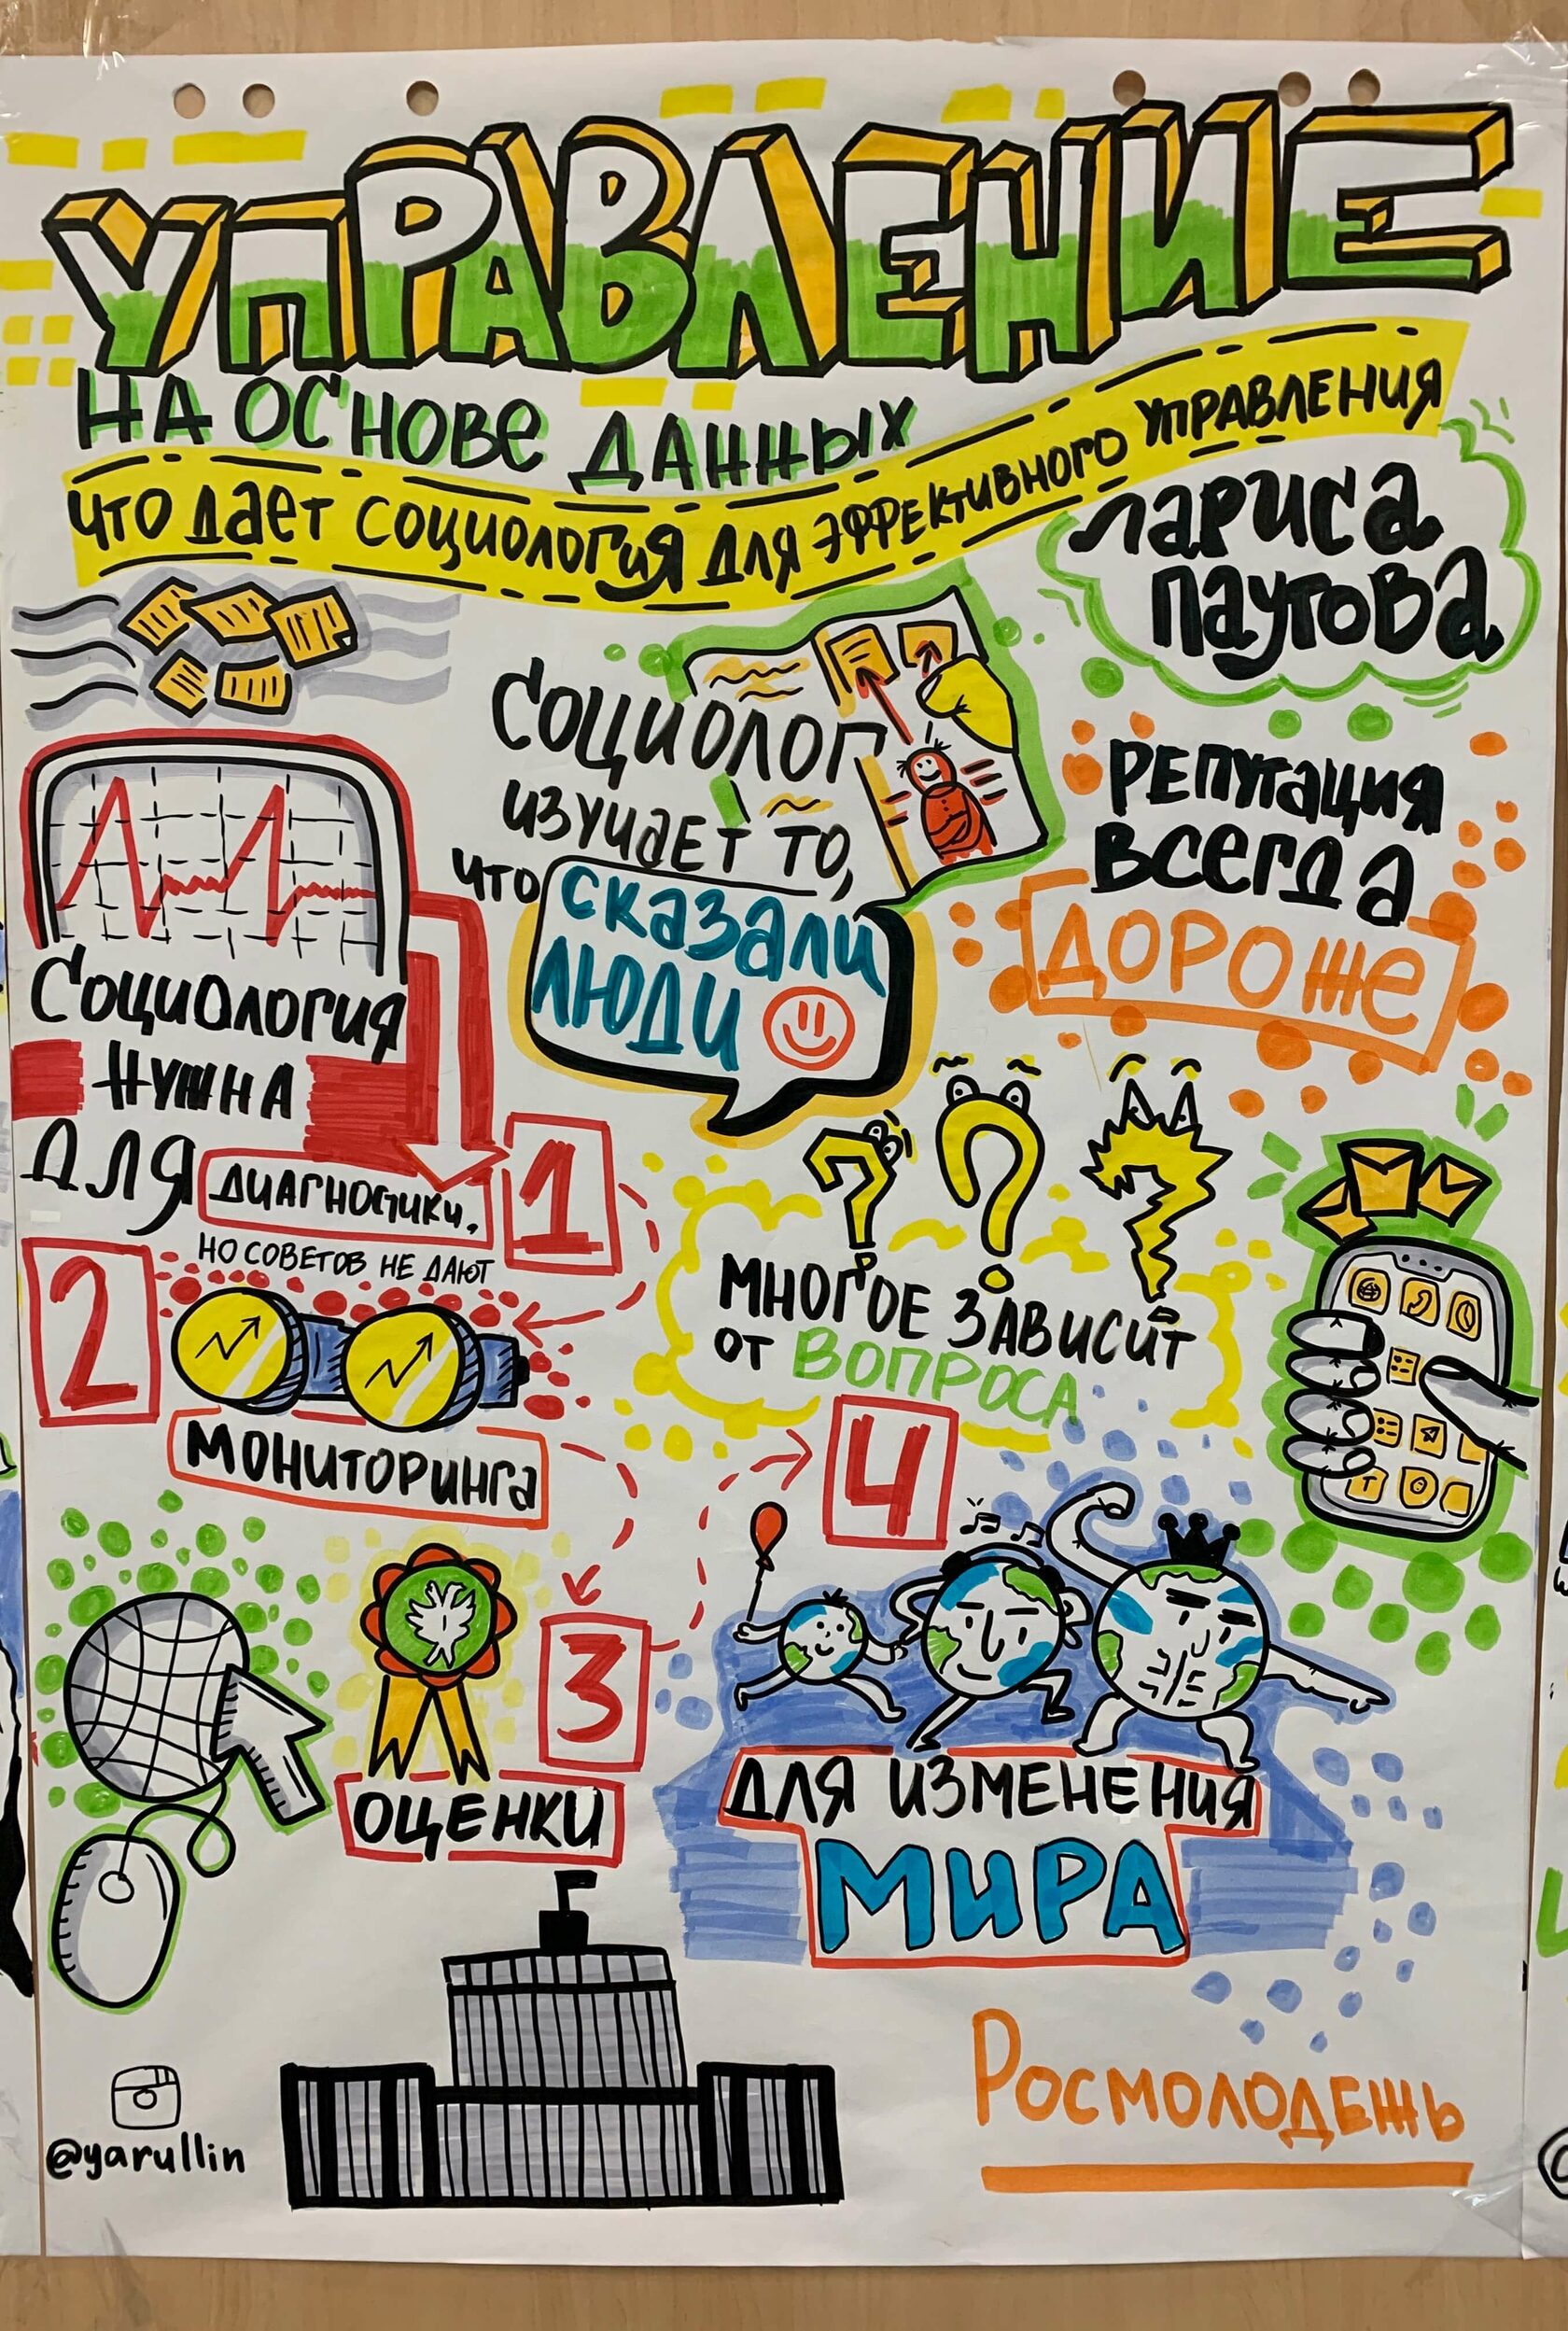 УПРАВЛЕНИЕ
НА ОСНОВЕ ДАННЫХ
ЧТО ДАЕТ СОЦИОЛОГИЯ ДЛЯ ЭФФЕКТИВНОГО УПРАВЛЕНИЯ
ЛАРИСА
ПАУТОВА
СОЦИОЛОГ
ИЗУЧАЕТ ТО,
ЧТО СКАЗАЛИ
ЛЮДИ
РЕПУТАЦИЯ
ВСЕГДА
ДОРОЖЕ
СОЦИОЛОГИЯ
НУЖНА
ДЛЯ ДИАГНОСТИКИ,
1
НО СОВЕТОВ НЕ ДАЮТ
2
МОНИТОРИНГА
МНОГОЕ ЗАВИСИТ
ОТ ВОПРОСА
3
ОЦЕНКИ
4
ДЛЯ ИЗМЕНЕНИЯ
МИРА
@yarullin
РОСМОЛОДЕЖЬ